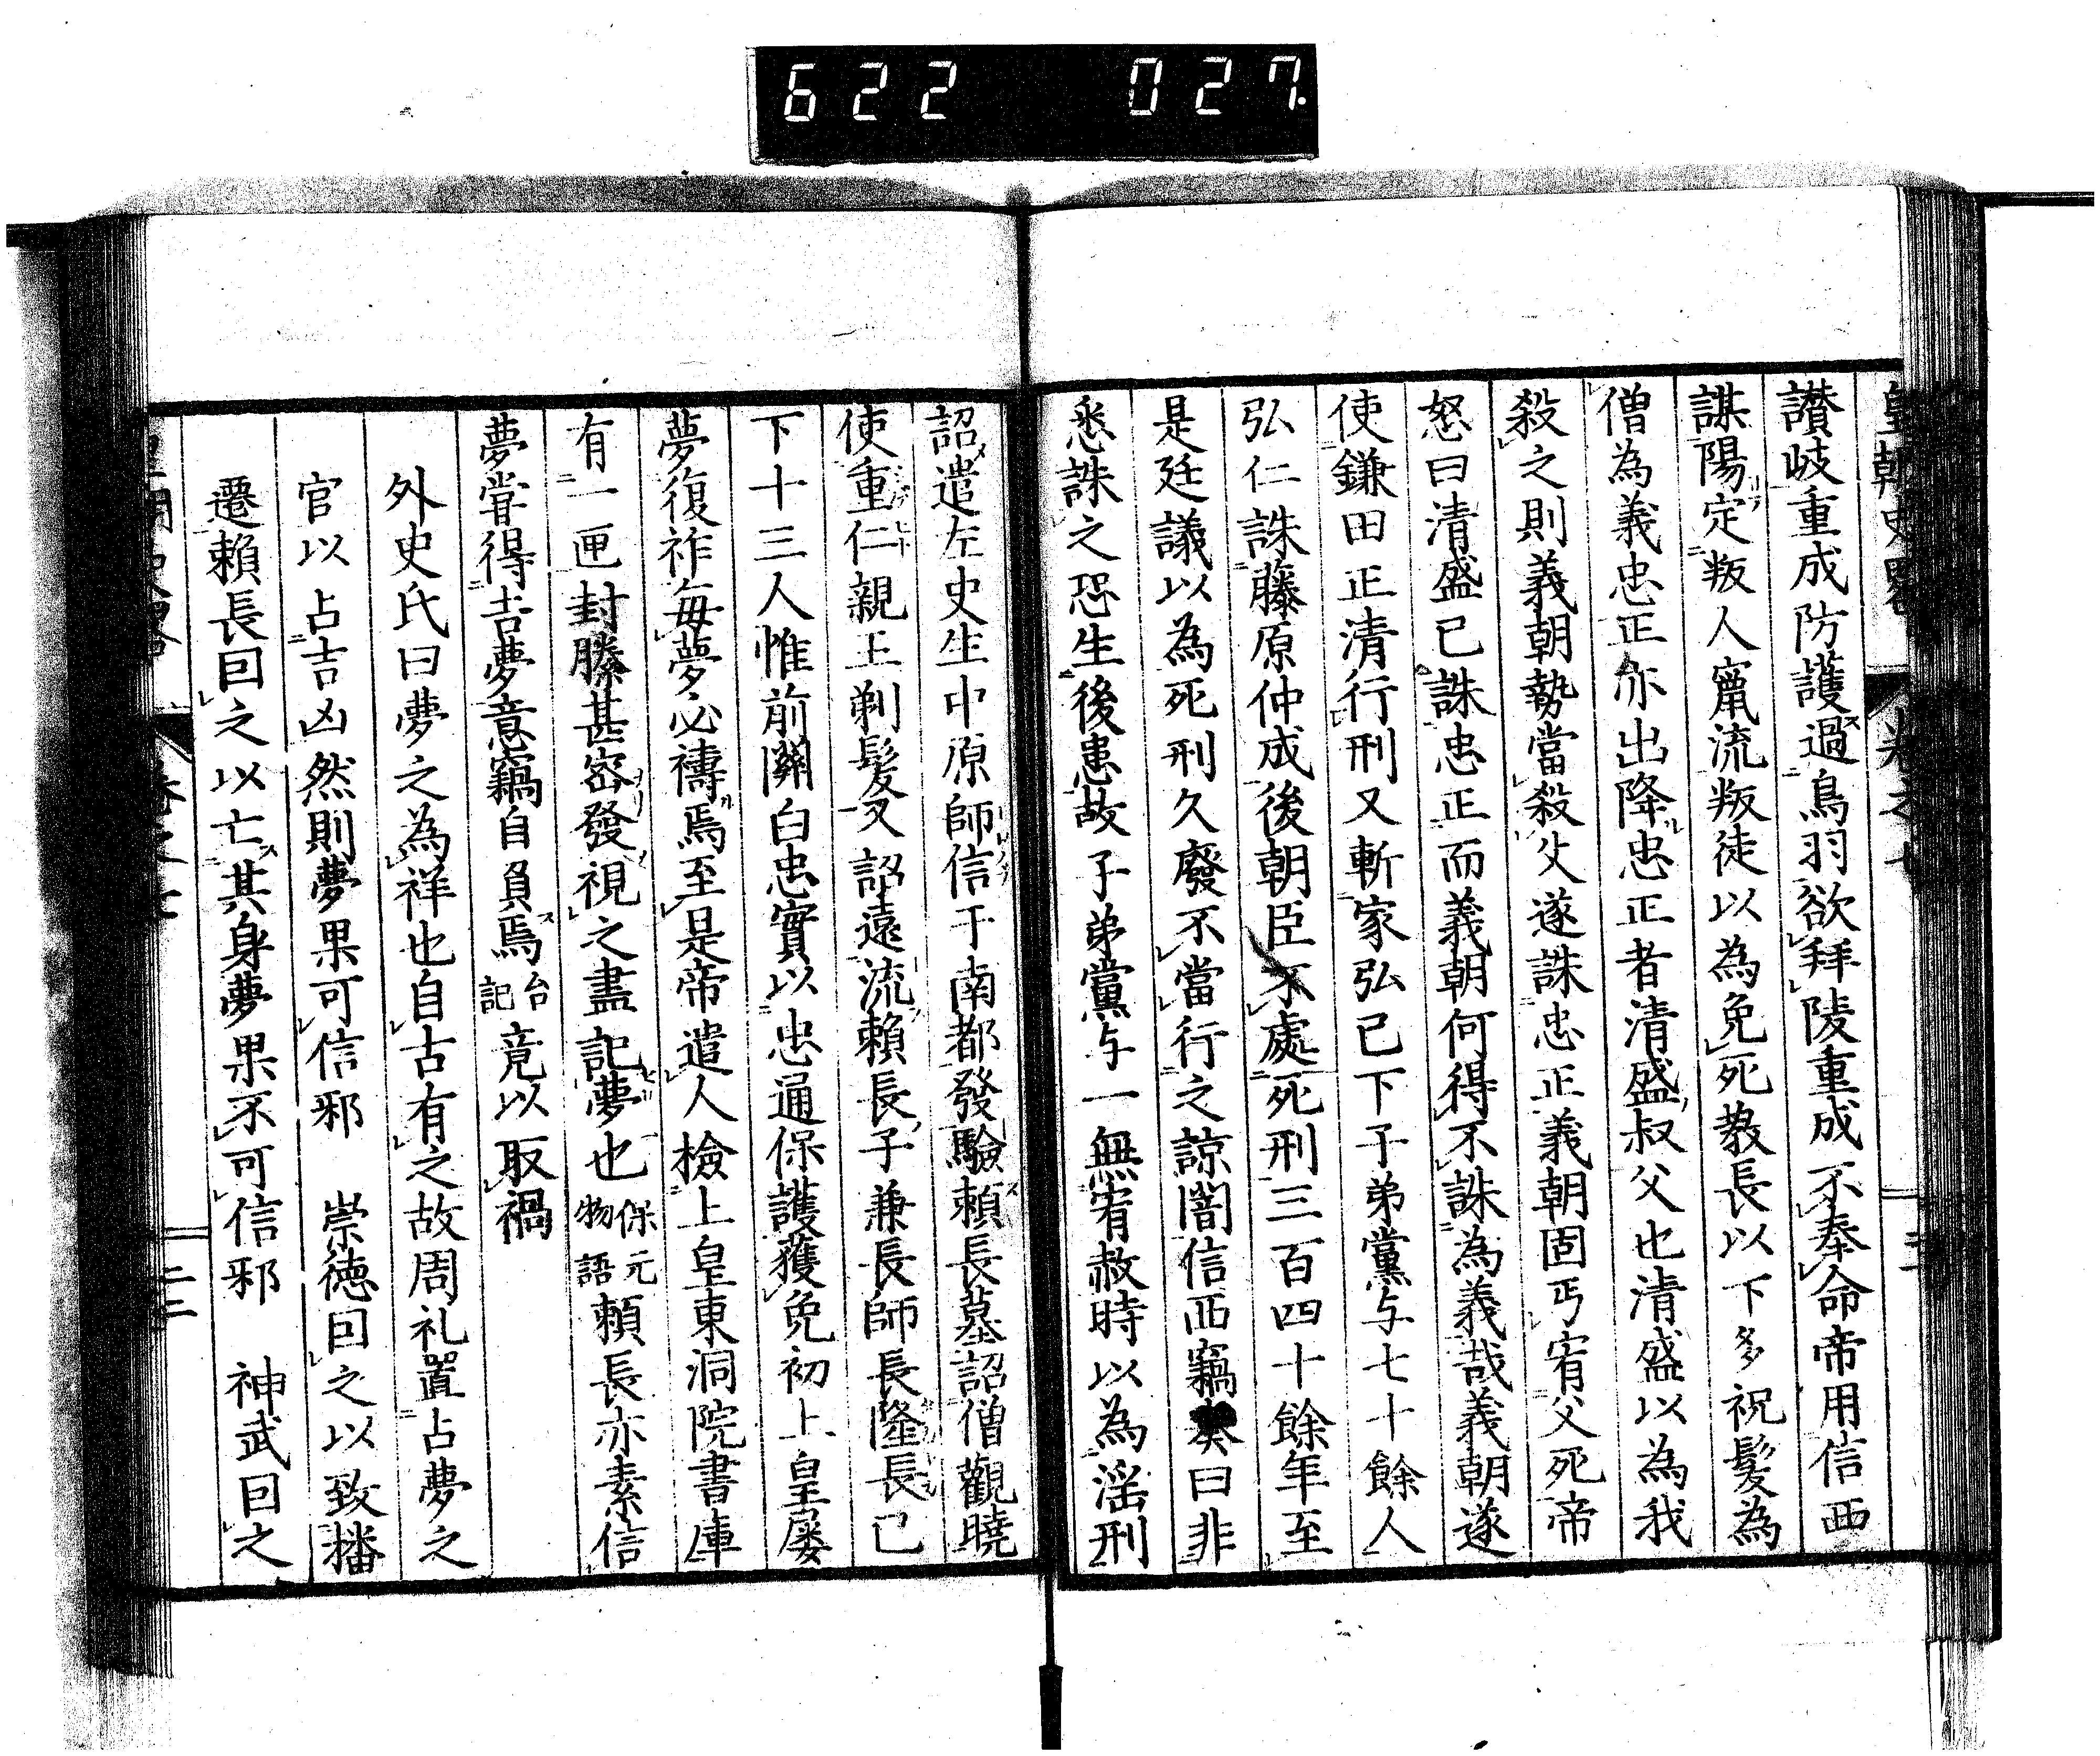 622 027
皇朝史畧 卷之七
讃岐重成防護過鳥羽欲拜陵重成不奉命帝用信西
謀陽定叛人竄流叛徒以為免死教長以下多祝髮為
僧為義忠正亦出降忠正者清盛叔父也清盛以為我
殺之則義朝勢當殺父遂誅忠正義朝固丐宥父死帝
怒曰清盛已誅忠正而義朝何得不誅為義哉義朝遂
使鎌田正清行刑又斬家弘已下子弟黨与七十餘人
弘仁誅藤原仲成後朝臣不處死刑三百四十餘年至
是廷議以為死刑久廢不當行之諒闇信西竊奏曰非
悉誅之恐生後患故子弟黨与一無宥赦時以為淫刑
詔遣左史生中原師信于南都發驗頼長墓詔僧觀曉
使重仁親王剃髮又詔遠流頼長子兼長師長隆長已
下十三人惟前關白忠實以忠通保護獲免初上皇屡
夢復祚毎夢必禱焉至是帝遣人檢上皇東洞院書庫
有一匣封縢甚密發視之盡記夢也保元物語頼長亦素信
夢甞得吉夢意竊自負焉台記竟以取禍
外史氏曰夢之為祥也自古有之故周礼置占夢之
官以占吉凶然則夢果可信邪 崇徳因之以致播
遷頼長因之以亡其身夢果不可信邪 神武因之
皇朝史畧 卷之七 二二